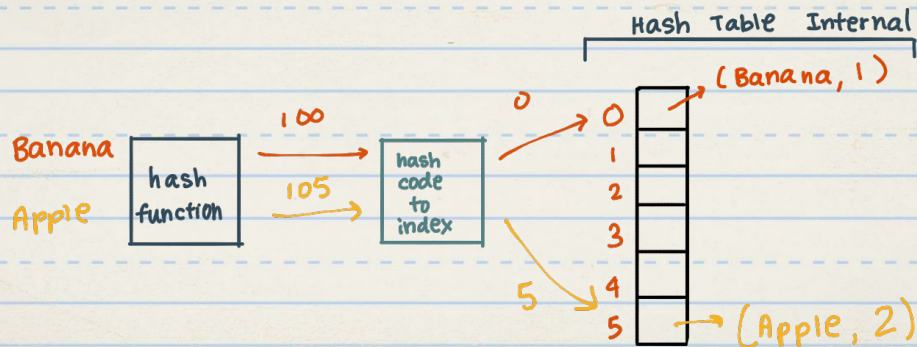 Hash Table Internal
(Banana, 1)
Banana
Apple
hash
function
100
105
hash
code
to
index
0
5
0
1
2
3
4
5
(Apple, 2)